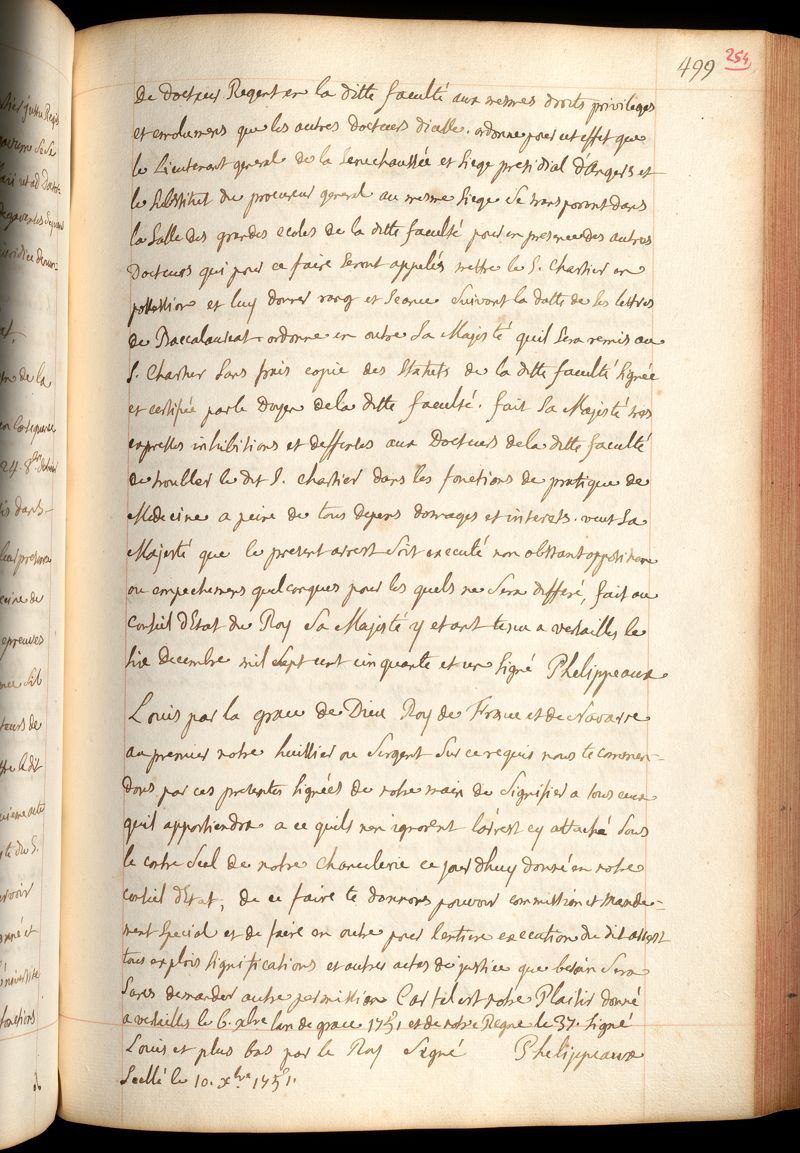 499 254
De Docteur Regent en la ditte faculté aux mesmes droits privileges
et emolumens que les autres Docteurs d'icelle. ordonne pour cet effet que
le Lieutenant general de la Senechaussée et Siege presidial d'Angers et
le Substitut du procureur general au mesme Siege se transporont dans
la Salle des grandes ecoles de la ditte faculté pour en presence des autres
Docteurs qui pour ce faire seront appelés mettre le S. Chartier en
possession et luy donner rang et Seance suivant la datte de ses lettres
de Baccalaureat. ordonne en outre Sa Majesté quil sera remis au
S. Chartier sans frais copie des Statuts de la ditte faculté signée
et certifiée par le Doyen de la ditte faculté. fait Sa Majesté tres
expresses inhibitions et deffenses aux Docteurs de la ditte faculté
de troubler le dit S. Chartier dans les fonctions de pratique de
Medecine a peine de tous depens domages et interets. veut Sa
Majesté que le present arrest soit executé non obstant opposition
ou empechemens quelconques pour les quels ne sera differé, fait au
Conseil d'Etat du Roy Sa Majesté y etant tenu a versailles le
six Decembre mil sept cent cinquante et un signé Phelippeaux
Louis par la grace de Dieu Roy de France et de Navarre
au premier notre huissier ou Sergent sur ce requis nous te comman-
dons par ces presentes signées de notre main de signifier a tous ceux
quil appartiendra a ce quils n'en ignorent l'arrest cy attaché sous
le contre Scel de notre Chancelerie ce jour d'huy donné en notre
conseil d'Etat, de ce faire te donnons pouvoir commission et mande-
ment special et de faire en outre pour l'entiere execution du dit arrest
tous exploits significations et autres actes de justice que besoin sera
sans demander autre permission Car tel est notre Plaisir donné
a versailles le 6. xbre l'an de grace 1751 et de notre Regne le 37. signé
Louis et plus bas par le Roy Signé Phelippeaux
Scellé le 10. xbre 1751.